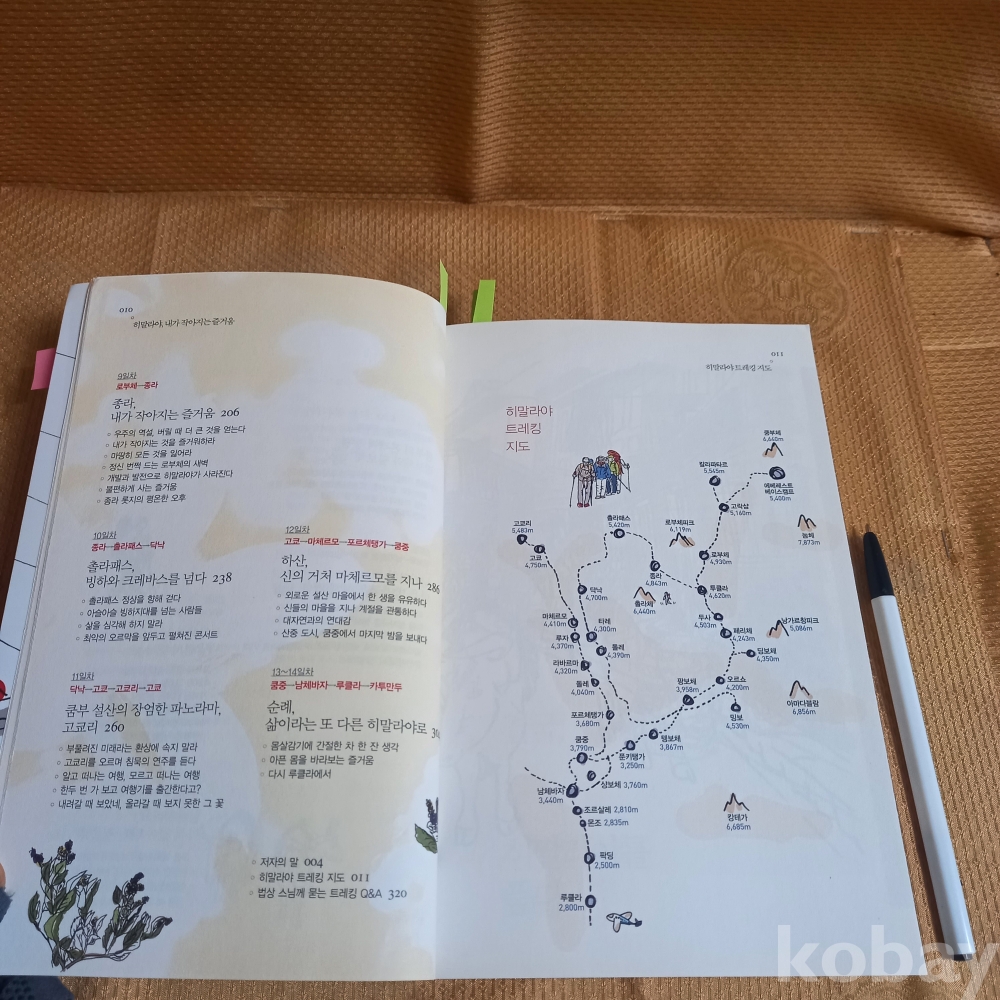 010
히말라야, 내가 작아지는 즐거움
9일차
로부체─종라
종라,
내가 작아지는 즐거움 206
우주의 역설, 버릴 때 더 큰 것을 얻는다
내가 작아지는 것을 즐거워하라
마땅히 모든 것을 잃어라
정신 번쩍 드는 로부체의 새벽
개발과 발전으로 히말라야가 사라진다
불편하게 사는 즐거움
종라 롯지의 평온한 오후
10일차
종라─촐라패스─닥낙
촐라패스,
빙하와 크레바스를 넘다 238
촐라패스 정상을 향해 걷다
아슬아슬 빙하지대를 넘는 사람들
삶을 심각해 하지 말라
최악의 오르막을 앞두고 펼쳐진 콘서트
11일차
닥낙─고쿄─고쿄리─고쿄
쿰부 설산의 장엄한 파노라마,
고쿄리 260
부풀려진 미래라는 환상에 속지 말라
고쿄리를 오르며 침묵의 연주를 듣다
알고 떠나는 여행, 모르고 떠나는 여행
한두 번 가 보고 여행기를 출간한다고?
내려갈 때 보았네, 올라갈 때 보지 못한 그 꽃
12일차
고쿄─마체르모─포르체텡가─쿰중
하산,
신의 거처 마체르모를 지나 286
외로운 설산 마을에서 한 생을 유유하다
신들의 마을을 지나 계절을 관통하다
대자연과의 연대감
산중 도시, 쿰중에서 마지막 밤을 보내다
13~14일차
쿰중─남체바자─루클라─카투만두
순례,
삶이라는 또 다른 히말라야로
몸살감기에 간절한 차 한 잔 생각
아픈 몸을 바라보는 즐거움
다시 루클라에서
저자의 말 004
히말라야 트레킹 지도 011
법상 스님께 묻는 트레킹 Q&A 320
011
히말라야 트레킹 지도
히말라야
트레킹
지도
쿰부체
6,640m
칼라파타르
5,545m
에베레스트
베이스캠프
5,400m
고락샵
5,160m
눕체
7,873m
고쿄리
5,483m
고쿄
4,750m
촐라패스
5,420m
로부체피크
6,119m
로부체
4,930m
종라
4,843m
촐라체
6,440m
투클라
4,620m
닥낙
4,700m
두사
4,503m
페리체
4,243m
낭가르창피크
5,086m
딩보체
4,350m
마체르모
4,410m
타레
4,300m
루자
4,370m
돌레
4,390m
라바르마
4,320m
돌레
4,040m
팡보체
3,958m
오르쇼
4,200m
밍보
4,530m
아마다블람
6,856m
포르체텡가
3,680m
텡보체
3,867m
쿰중
3,790m
푼키텡가
3,250m
상보체 3,760m
남체바자
3,440m
조르살레 2,810m
몬조 2,835m
캉테가
6,685m
팍딩
2,500m
루클라
2,800m
kobay